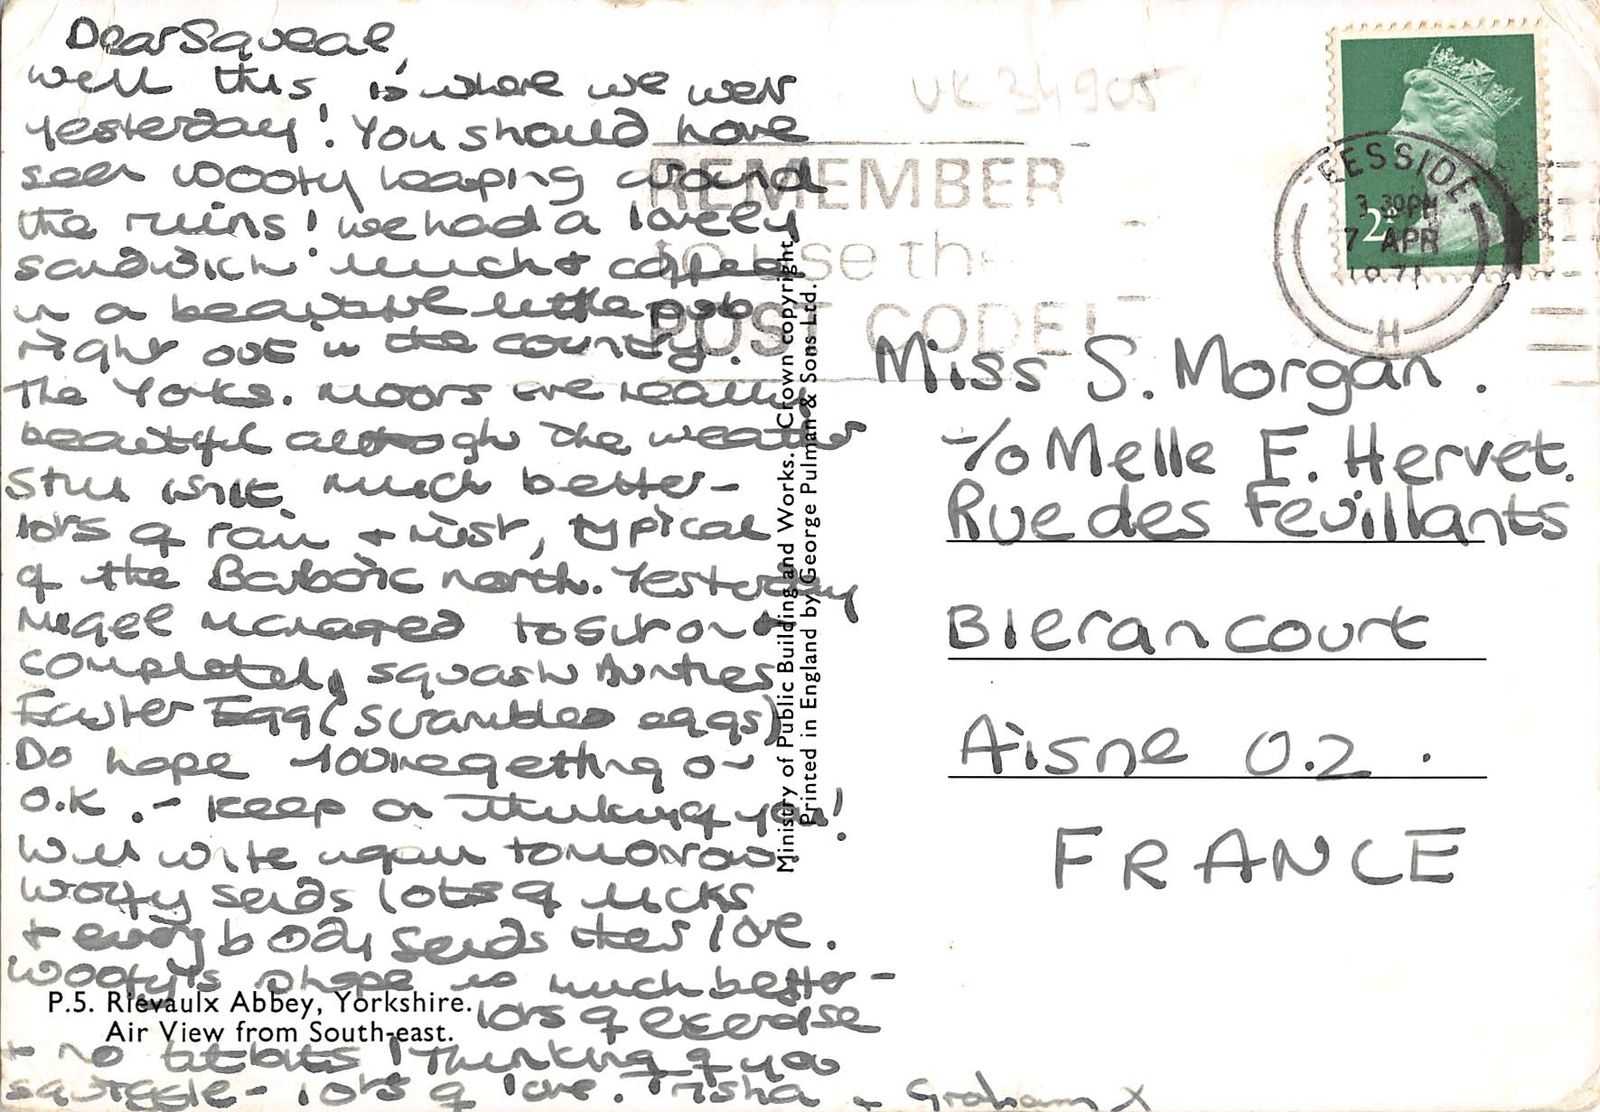 Dear Squeal,
Well this, is where we went
yesterday! You should have
seen Wooty leaping around
the ruins! We had a lovely
sandwich lunch + coffee
in a beautiful little pub
right out in the country.
The Yorks. Moors are really
beautiful although the weather
still isnt much better -
lots of rain + mist, typical
of the Barbaric north. Yesterday
Nigel managed to sit on +
completely squash Aunties
Easter Egg (scrambled eggs)
Do hope you're getting on
O.K. - keep on thinking of you!
Will write again tomorrow.
Wooty sends lots of licks
+ everybody sends their love.
Wooty's shape is much better -
lots of exercise
+ no titbits! Thinking of you
squiggle - lots of love. Trisha + Graham X
P.5. Rievaulx Abbey, Yorkshire.
Air View from South-east.
Ministry of Public Building and Works. Crown copyright.
Printed in England by George Pulman & Sons Ltd.
UK 34905
REMEMBER
to use the
POST CODE!
TEESSIDE
3 30PM
7 APR
1971
H
2P
Miss S. Morgan.
c/o Melle F. Hervet.
Rue des Feuillants
Blerancourt
Aisne 02.
FRANCE